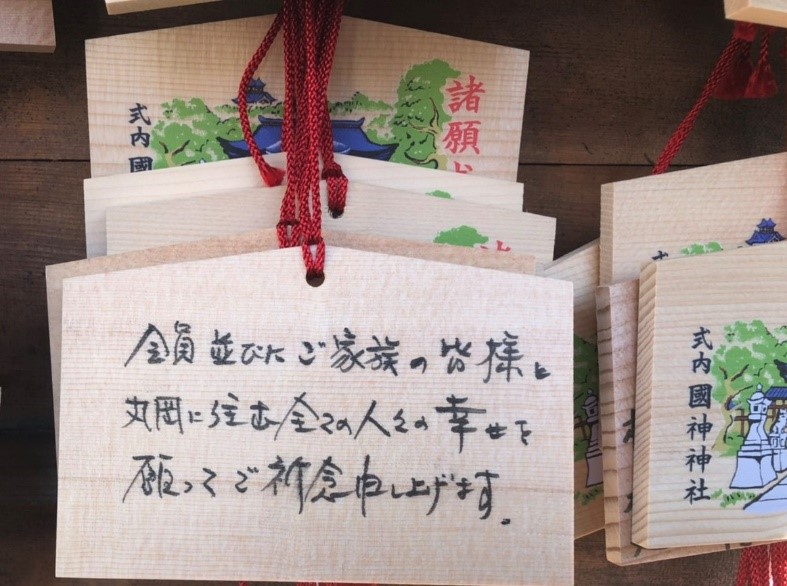 全員並びにご家族の皆様と
丸岡に住む全ての人々の幸せを
願ってご祈念申し上げます。
式内國
諸願
式内國神神社